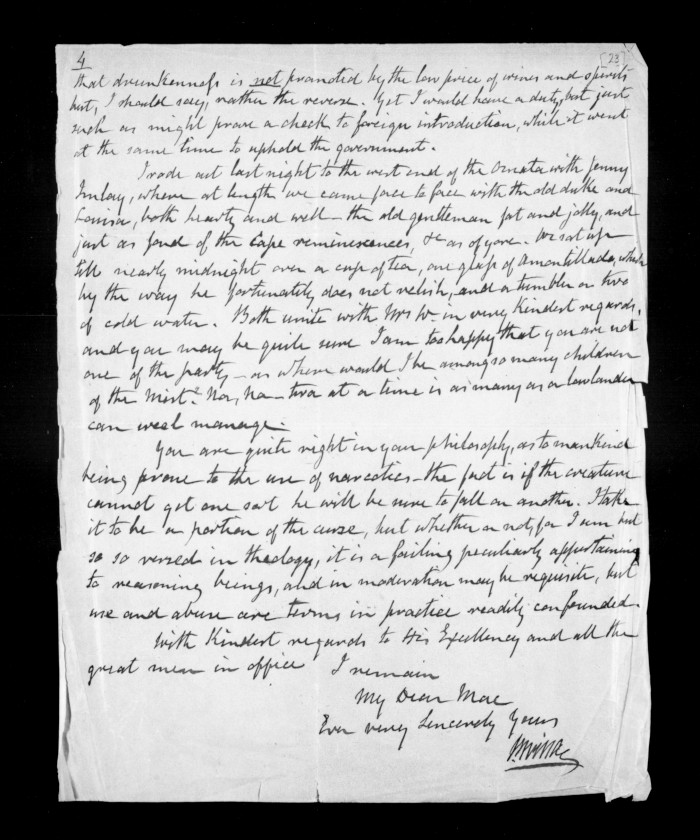 4
[23]
that drunkenness is not promoted by the low price of wines and spirits
but, I should say, rather the reverse. Yet I would have a duty, but just
such as might prove a check to foreign introduction, while it went
at the same time to uphold the government.
I rode out last night to the west end of the with Jenny
Imlay, where at length we came face to face with the old duke and
Louisa, both hearty and well – the old gentleman fat and jolly, and
just as fond of the Cape reminiscences, &c as of yore. We sat up
till nearly midnight over a cup of tea, one glass of Amontillado, which
by the way he fortunately does not relish, and a tumbler or two
of cold water. Both unite with Mrs W in very kindest regards,
and you may be quite sure I am too happy that you are not
one of the party – as where would I be among so many children
of the Mist? Na, na – twa at a time is as many as a lowlander
can weel manage.
You are quite right in your philosophy, as to mankind
being prone to the use of narcotics – the fact is if the creature
cannot get one sort he will be sure to fall on another. I take
it to be a portion of the curse, but whether or not, for I am but
so so versed in theology, it is a failing peculiarly appertaining
to reasoning beings, and in moderation may be requisite, but
use and abuse are terms in practice readily confounded.
With kindest regards to His Excellency and all the
great men in office I remain
My Dear Mac
Ever very Sincerely Yours